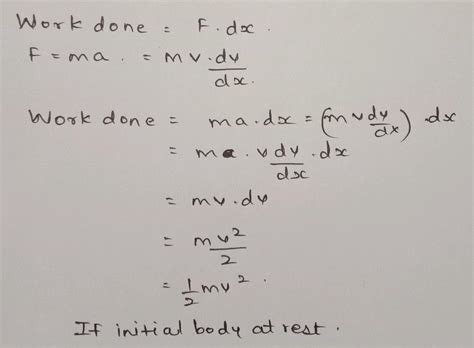 Work done = F.dx.
F = ma. = mv.dv/dx.
Work done = ma.dx = (mv dv/dx) .dx
= ma. v dv/dx .dx
= mv.dv
= mv²/2
= 1/2 mv².
If initial body at rest.